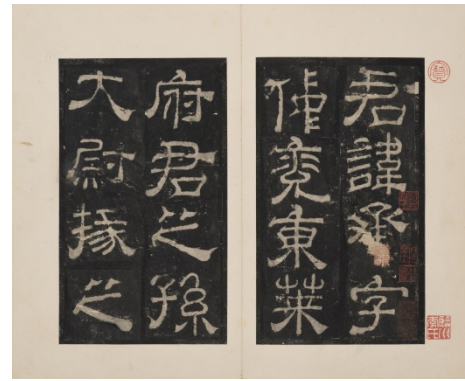 君諱承字
仲兖東萊
府君之孫
大尉掾之